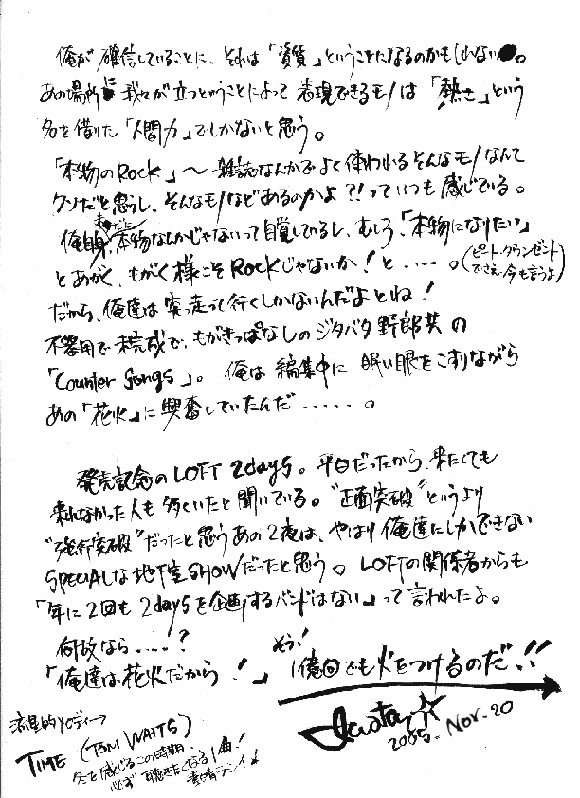 俺が確信していることに、それは「資質」ということになるのかもしれない。
あの場所に我々が立つということによって表現できるモノは「熱さ」という
名を借りた「人間力」でしかないと思う。
「本物のRock」〜雑誌なんかでよく使われるそんなモノなんて
クソだと思うし、そんなモノなどあるのかよ?!っていつも感じている。
俺自身まだに本物なんかじゃないって自覚しているし、むしろ、「本物になりたい」
とあがく、もがく様こそRockじゃないか!と‥‥。(ピート・タウンゼント
でさえ、今も言うよ)
だから、俺達は突っ走って行くしかないんだよとね!
不器用で未完成で、もがきっぱなしのジタバタ野郎共の
「Counter Songs」。俺は編集中に眠い眼をこすりながら
あの「花火」に興奮していたんだ‥‥‥。
発売記念のLOFT 2days。平日だったから、来たくても
来れなかった人も多くいたと聞いている。“正面突破”というより
“強行突破”だったと思うあの2夜は、やはり俺達にしかできない
SPECIALな地下室SHOWだったと思う。LOFTの関係者からも
「年に2回も2daysを企画するバンドはない」って言われたよ。
何故なら‥‥?
「俺達は花火だから!」そう!1億回でも火をつけるのだ!!
2005. Nov. 20
流星的メロディー
TIME (TOM WAITS)
冬を感じるこの時期、
必ず聴きたくなる1曲!